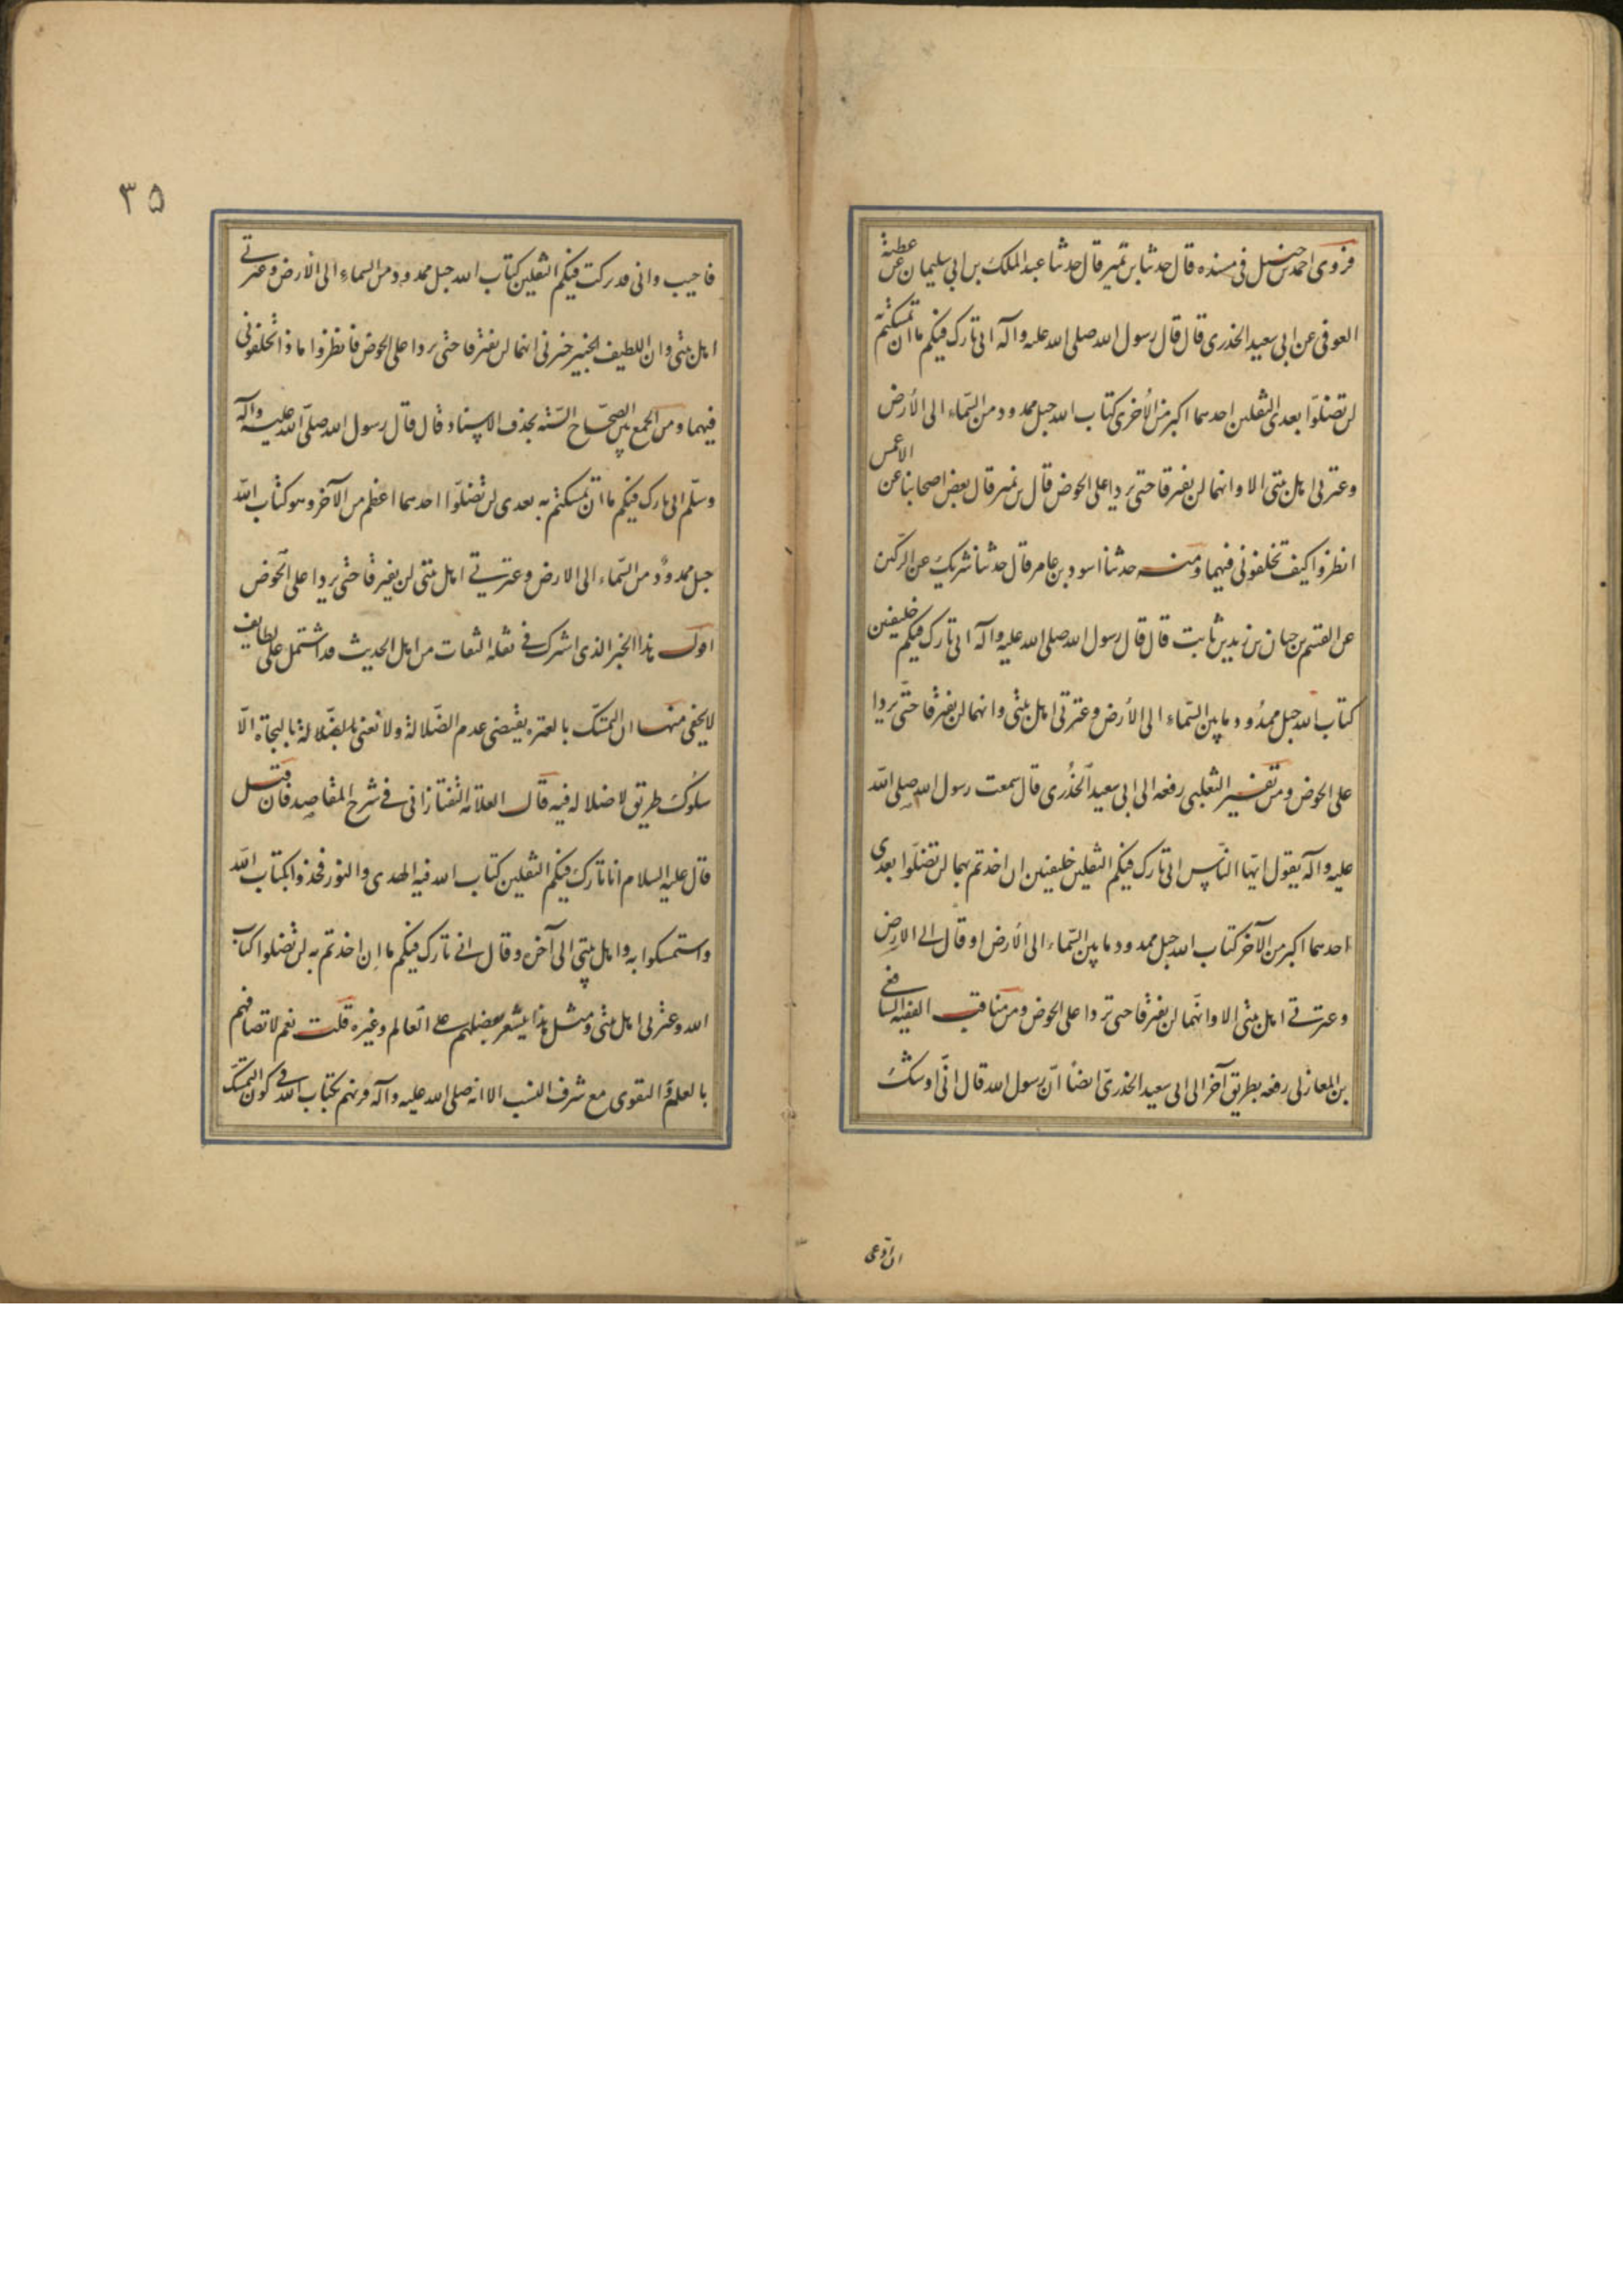 فروى احمد بن حنبل فى مسنده قال حدثنا بن نمير قال حدثنا عبد الملك بن ابى سليمان عن عطية
العوفى عن ابى سعيد الخدرى قال قال رسول الله صلى الله عليه وآله انى تارك فيكم ما ان تمسكتم به
لن تضلوّا بعدى الثقلين احدهما اكبر من الأخرى كتاب الله حبل ممدود من السّماء الى الأرض
وعترتى اهل بيتى الا وانهما لن يفترقا حتى يردا على الحوض قال بن نمير قال بعض اصحابنا عن الاعمش
انظروا كيف تخلفونى فيهما ومنه حدثنا اسود بن عامر قال حدثنا شريك عن الركين
عن القسم بن حسان بن زيد بن ثابت قال قال رسول الله صلى الله عليه وآله انى تارك فيكم خليفتين
كتاب الله حبل ممدُود ما بين السّماء الى الأرض وعترتى اهل بيتى وانهما لن يفترقا حتّى يردا
على الحوض ومن تفسير الثعلبى رفعه الى ابى سعيد الخُدرى قال سمعت رسول الله صلى الله
عليه وآله يقول ايّها النّاس انى تارك فيكم الثقلين خليفتين ان اخذتم بهما لن تضلّوا بعدى
احدهما اكبر من الآخر كتاب الله حبل ممدود ما بين السّماء الى الأرض او قال الى الارض
وعترتى اهل بيتى الا وانهّما لن يفترقا حتى تردا على الحوض ومن مناقب الفقيه الشافعى
بن المغازلى رفعه بطريق آخر الى ابى سعيد الخدرىّ ايضاً انّ رسول الله قال انّى اوشك
ان ادعى
٣٥
فاجيب وانى قد تركت فيكم الثقلين كتاب الله حبل ممدود من السماء الى الأرض وعترتى
اهل بيتى وان اللطيف الخبير خبرنى انهما لن يفترقا حتى يردا على الحوض فانظروا ماذا تخلفونى
فيهما ومن الجمع بين الصحّاح السّتة بحذف الاسناد قال قال رسول الله صلّى الله عليه وآله
وسلّم انى تارك فيكم ما ان تمسكتم به بعدى لن تضلّوا احدهما اعظم من الآخر وهو كتاب الله
حبل ممدودٌ من السّماء الى الارض وعترتى اهل بيتى لن يفترقا حتى يردا على الحوض
اقول هذا الخبر الذى اشترك فى نقله الثقات من اهل الحديث قد اشتمل على لطايف
لا يخفى منها ان التمسّك بالعترة يقتضى عدم الضّلالة ولا نعنى بالضّلالة بالنجاة الّا
سلوُك طريق لا ضلالة فيه قال العلّامة التفتازانى فى شرح المقاصد فان قيل
قال عليه السلام انا تارك فيكم الثقلين كتاب الله فيه الهدى والنور فخذوا بكتاب الله
واستمسكوا به واهل بيتى الى آخره وقال انى تارك فيكم ما ان اخذتم به لن تضلوا كتاب
الله وعترتى اهل بيتى ومثل هذا يشعر بفضلهم على العالم وغيره قلت نعم لاتصافهم
بالعلم والتقوى مع شرف النسب الا انه صلى الله عليه وآله قرنهم بكتاب الله فى كون التمسّك